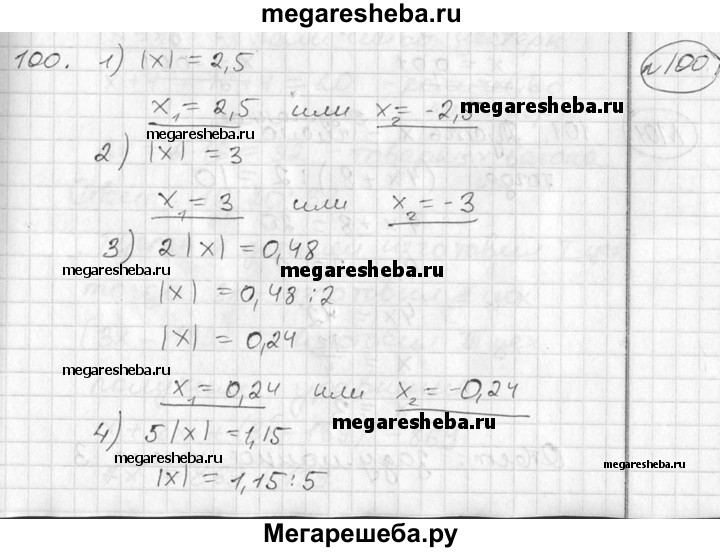 megaresheba.ru
100. 1) |x| = 2,5
№100
x₁ = 2,5 или x₂ = -2,5
megaresheba.ru
megaresheba.ru
2) |x| = 3
x₁ = 3 или x₂ = -3
3) 2|x| = 0,48
megaresheba.ru
megaresheba.ru
megaresheba.ru
|x| = 0,48 : 2
|x| = 0,24
megaresheba.ru
x₁ = 0,24 или x₂ = -0,24
megaresheba.ru
4) 5|x| = 1,15
megaresheba.ru
megaresheba.ru
|x| = 1,15 : 5
Мегарешеба.ру